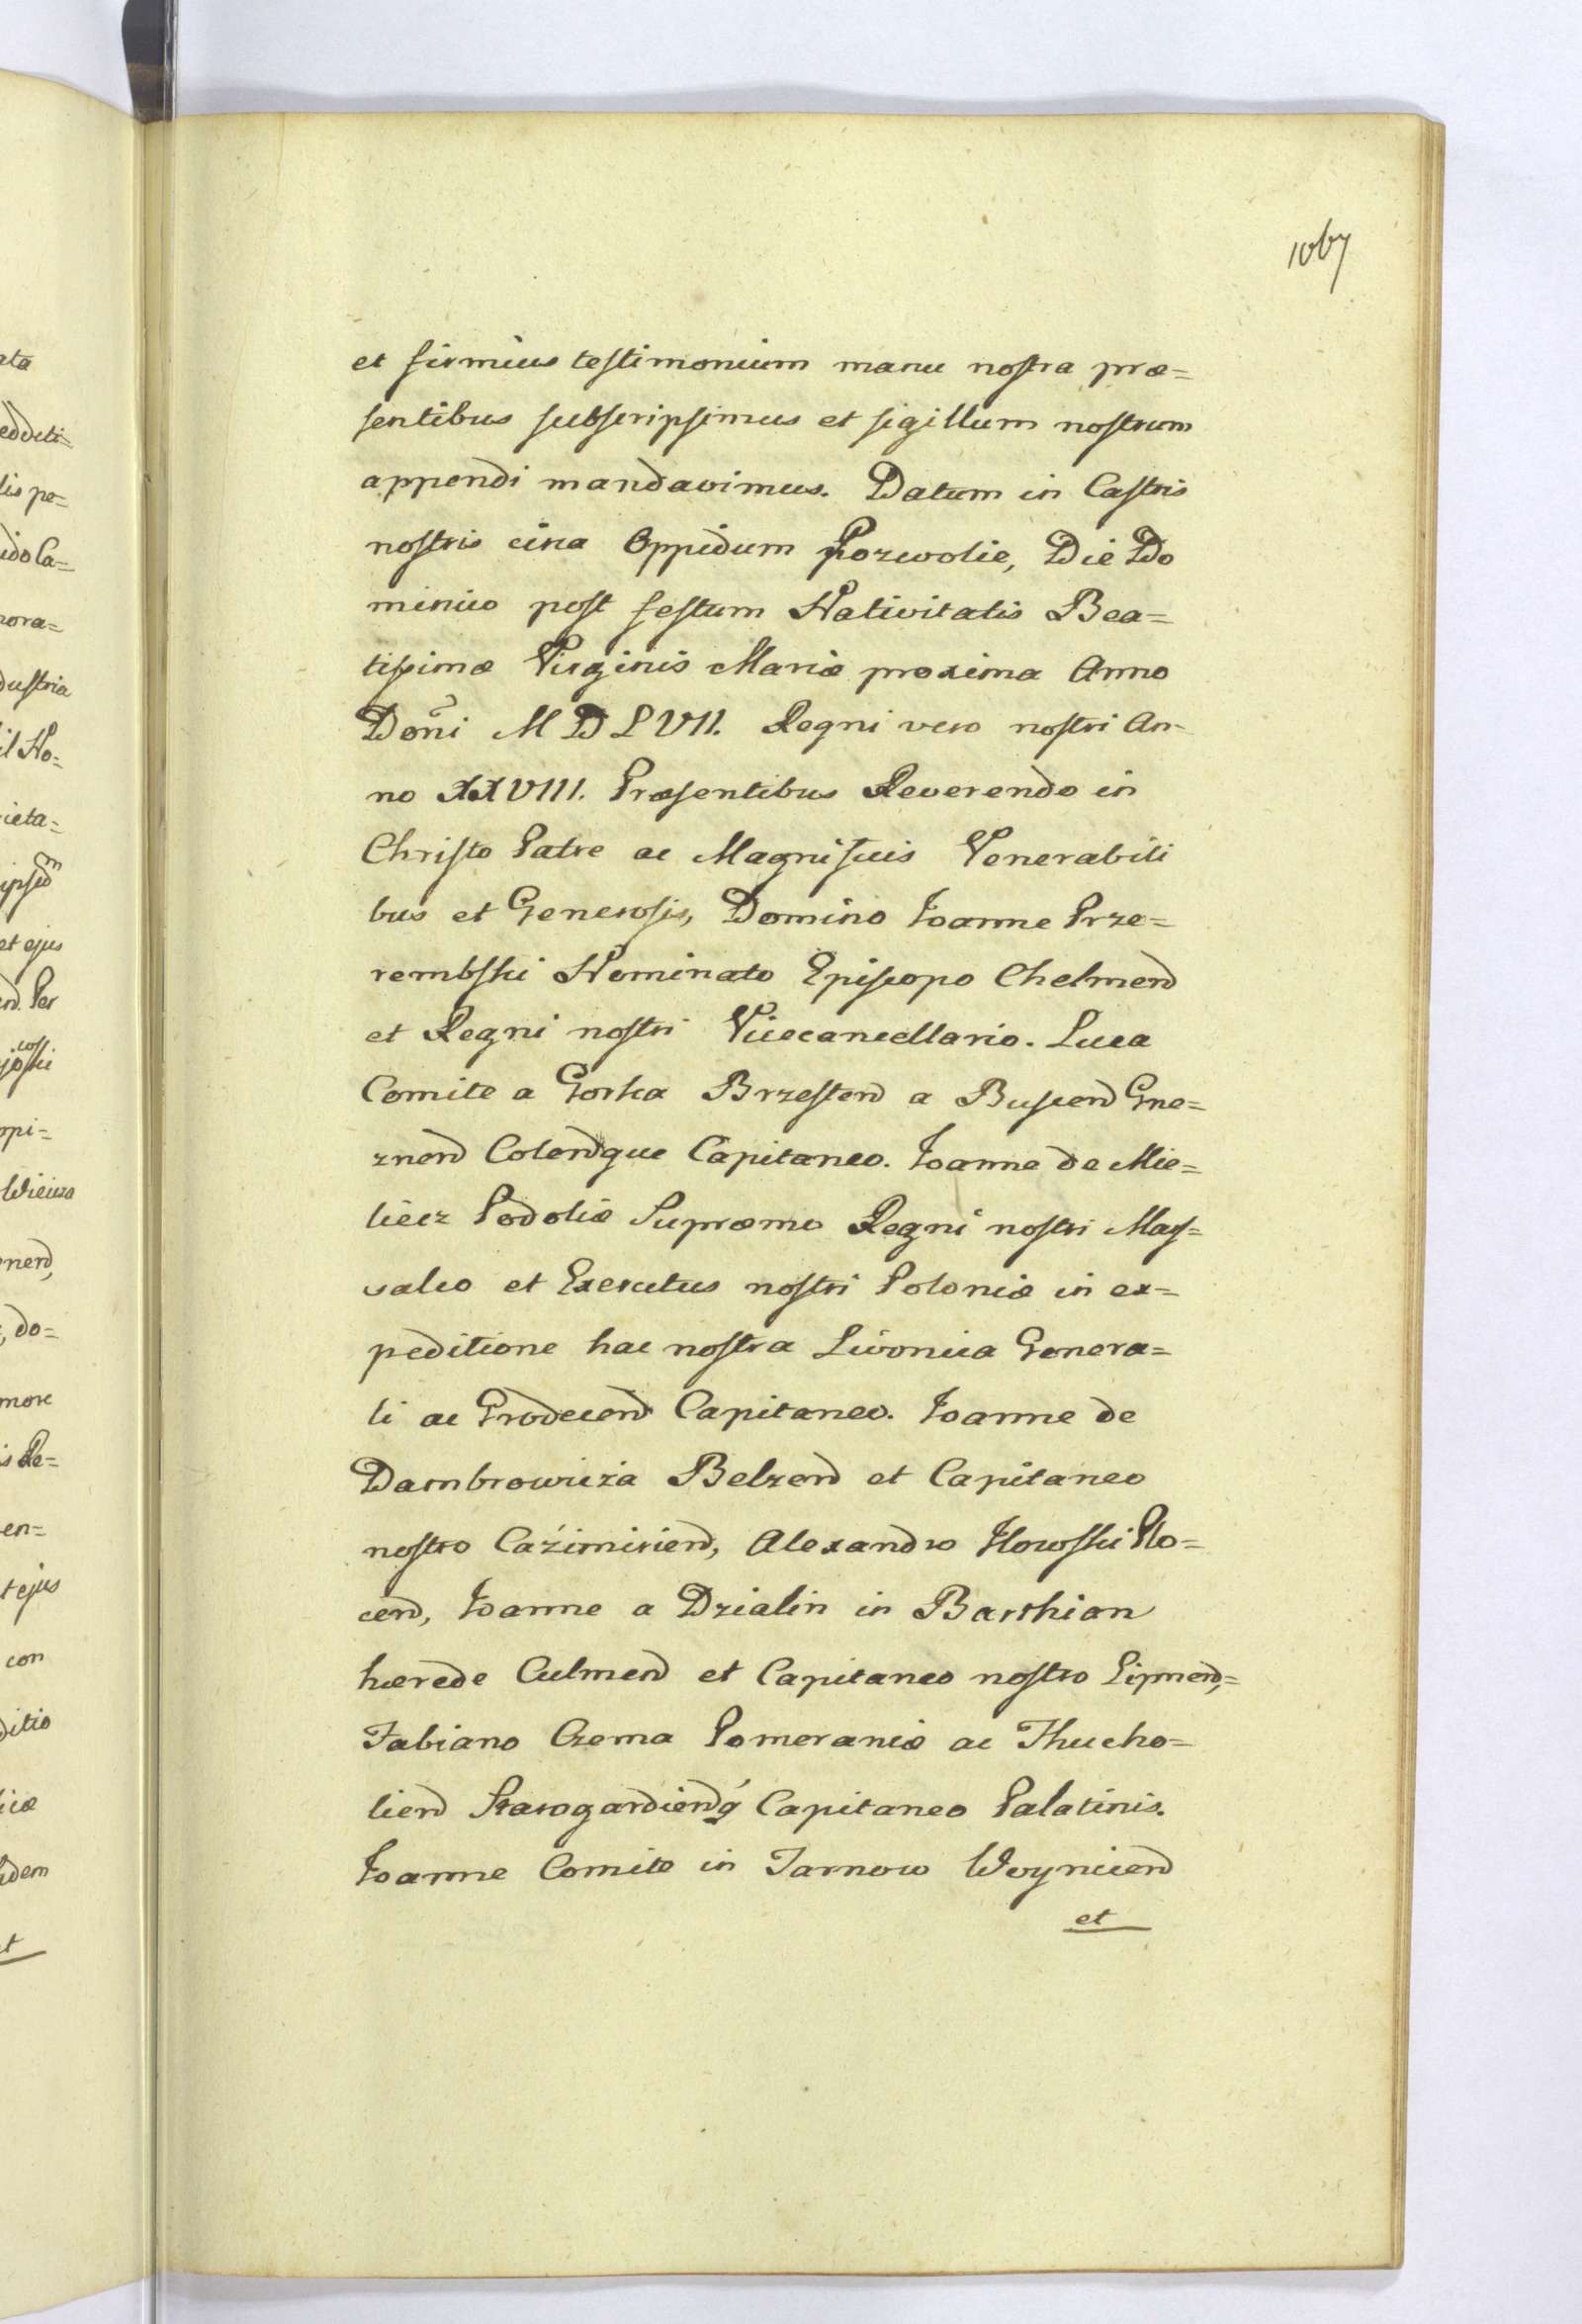 1067
et firmius testimonium manu nostra præ=
sentibus subscripsimus et sigillum nostrum
appendi mandavimus. Datum in Castris
nostris circa Oppidum Pozwolie, Die Do
minico post festum Nativitatis Bea=
tissimæ Virginis Mariæ proxima Anno
Doñi MDLVII. Regni vero nostri An-
no XXVIII. Præsentibus Reverendo in
Christo Patre ac Magnificis Venerabili
bus et Generosis, Domino Joanne Prze=
rembski Nominato Episcopo Chelmen
et Regni nostri Vicecancellario. Luca
Comite a Gorka Brzesten a Buscen Gne=
znen Colenque Capitaneo. Joanne de Mie=
liecz Podoliæ Supræmo Regni nostri Mars=
valco et Exercitus nostri Poloniæ in ex=
peditione hac nostra Livonica Genera=
li ac Grodecen Capitaneo. Joanne de
Dambrowicza Belzen et Capitaneo
nostro Cazimirien, Alexandro Ilowski Plo=
cen, Joanne a Dzialin in Barthian
hærede Culmen et Capitaneo nostro Lipnen,=
Fabiano Czema Pomeraniæ ac Thucho=
lien Starogardienq́ Capitaneo Palatinis.
Joanne Comite in Tarnow Woynicen
et
ata
dustria
et ejus
more
en=
con
ditio
idem